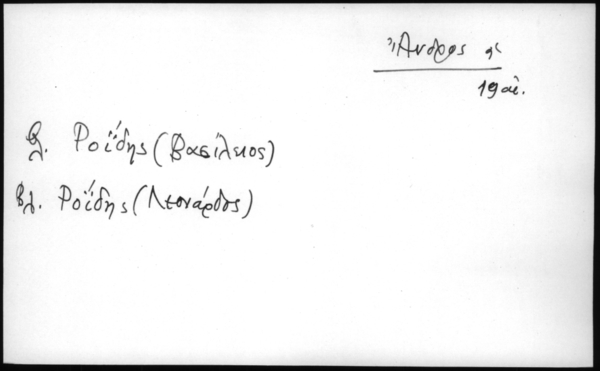 Ἄνδρος
19 αἰ.
βλ. Ροΐδης (Βασίλειος)
βλ. Ροΐδης (Λεονάρδος)